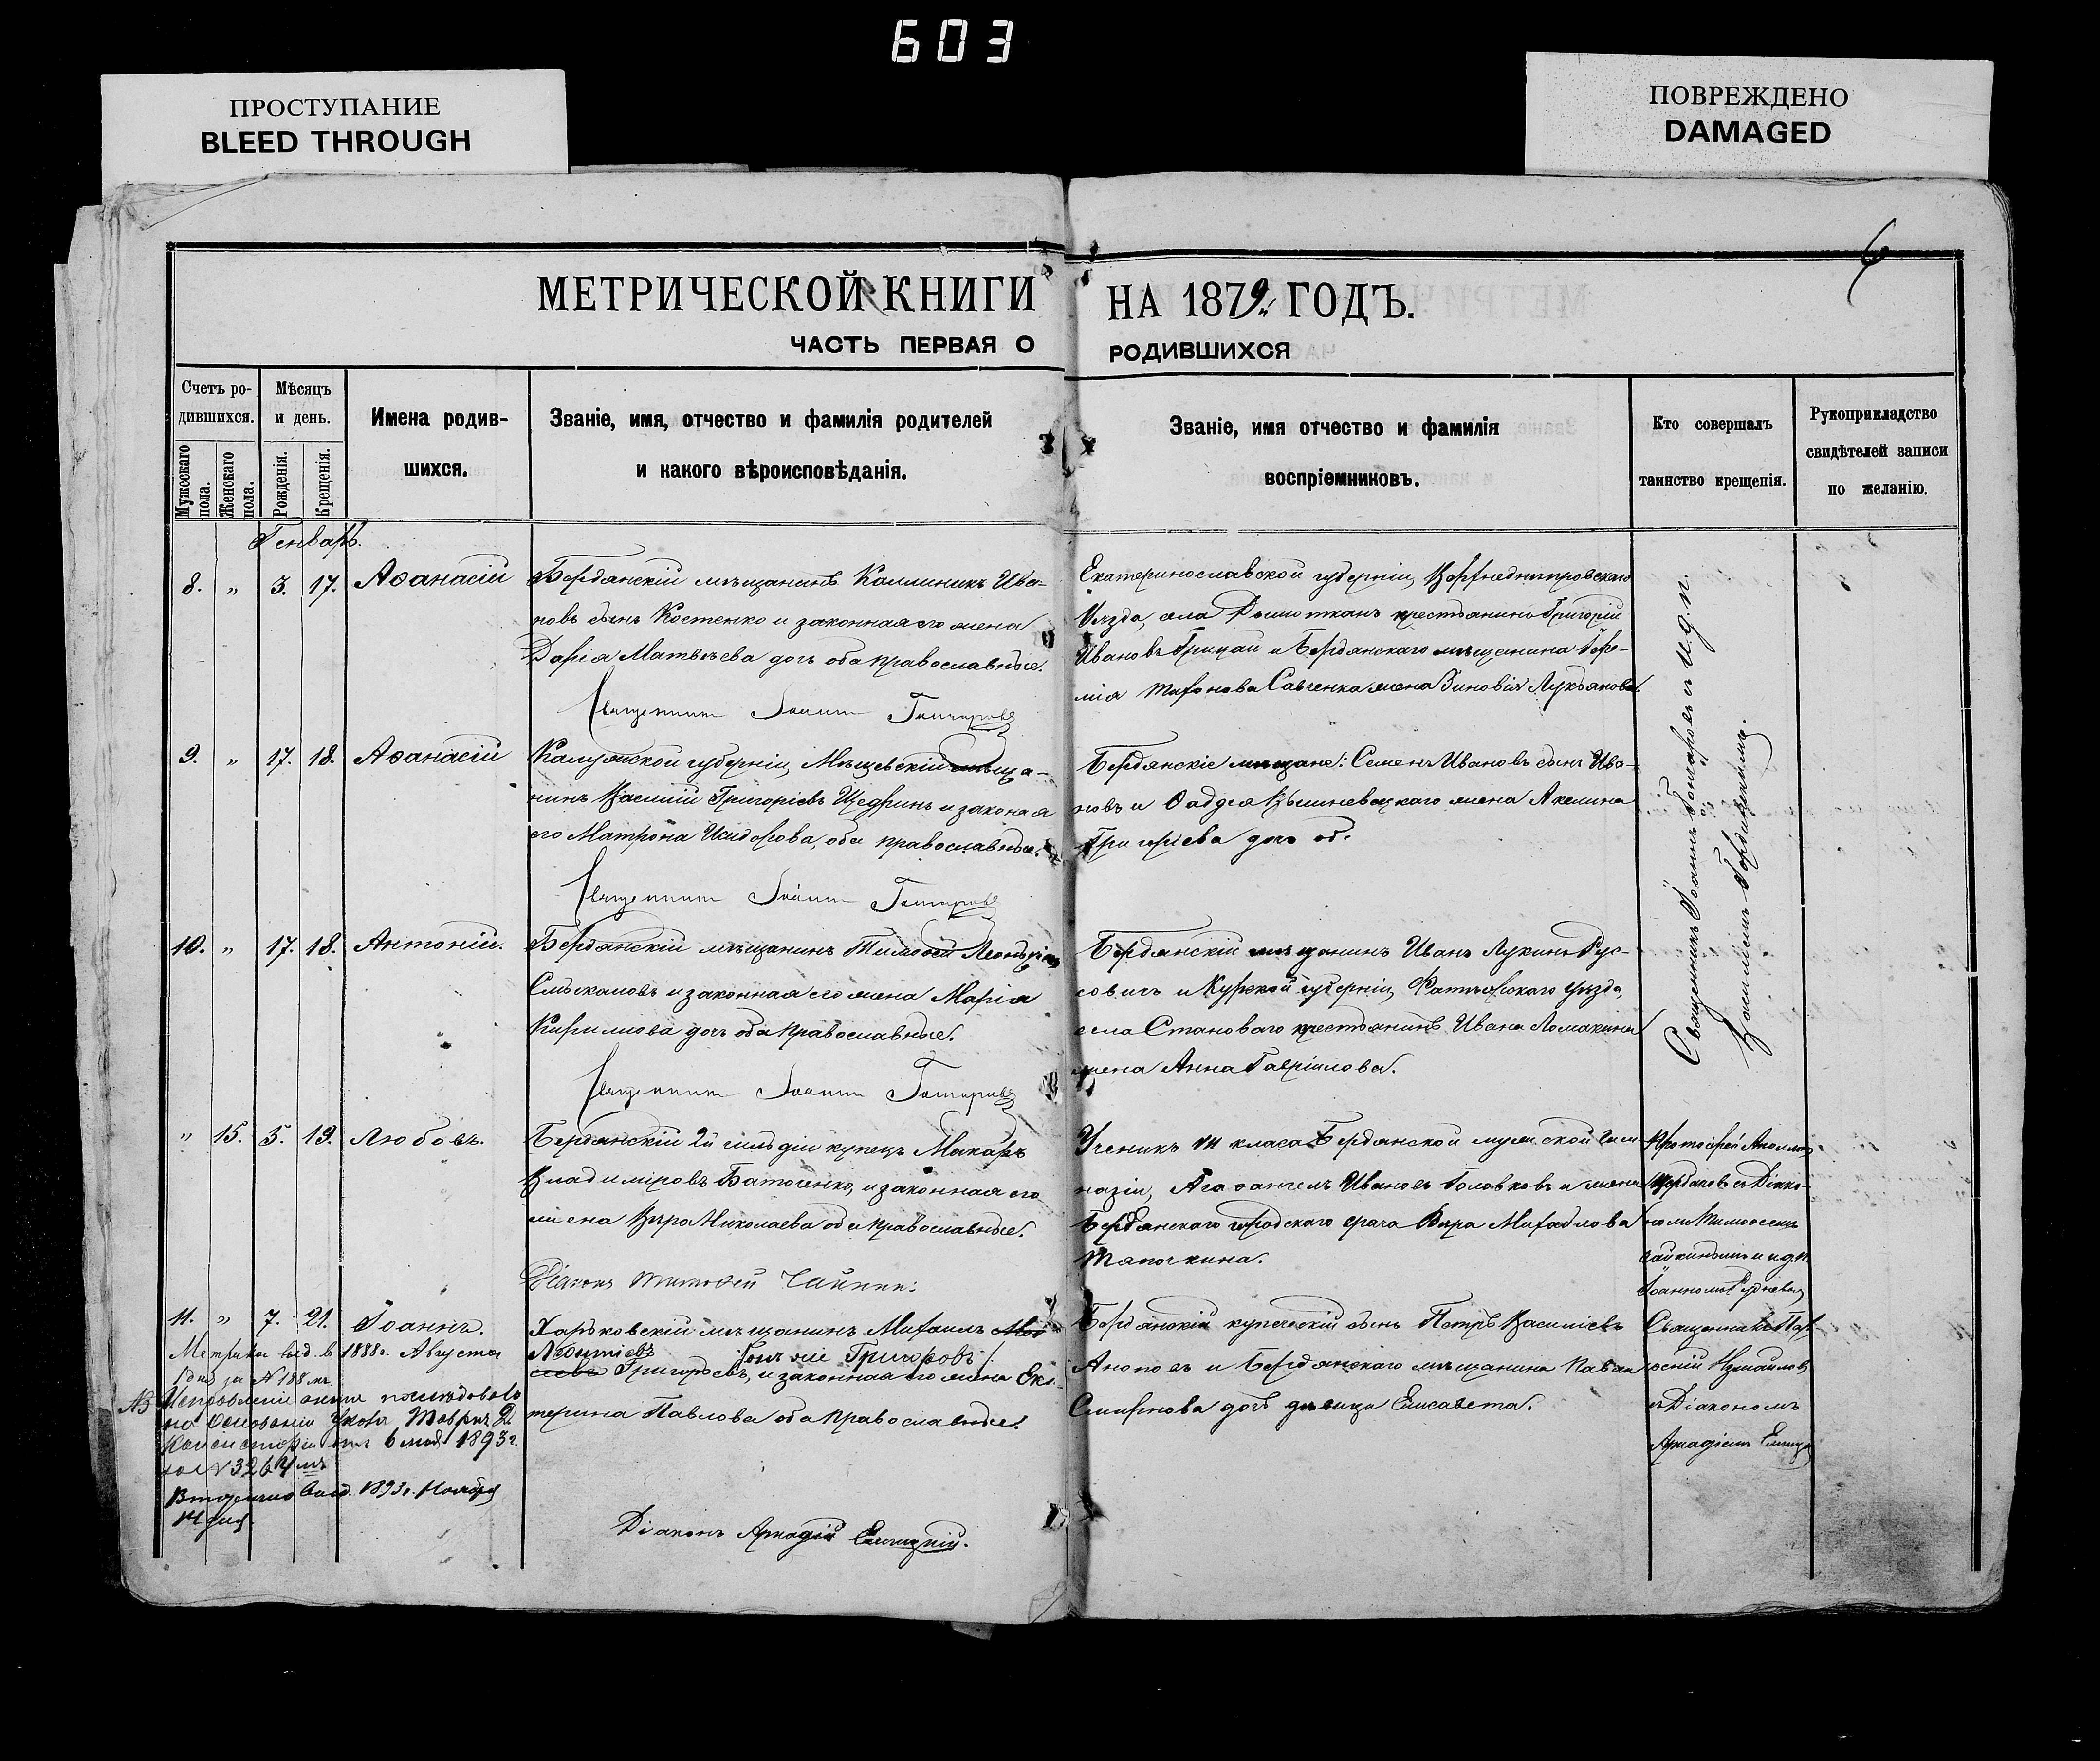 603
ПРОСТУПАНИЕ
BLEED THROUGH
ПОВРЕЖДЕНО
DAMAGED
6
МЕТРИЧЕСКОЙ КНИГИ НА 1879 ГОДЪ.
ЧАСТЬ ПЕРВАЯ О РОДИВШИХСЯ
Счетъ ро-
дившихся.
Мужескаго пола.
Женскаго пола.
Мѣсяцъ
и день.
Рожденія.
Крещенія.
Имена родив-
шихся.
Званіе, имя, отчество и фамилія родителей
и какого вѣроисповѣданія.
Званіе, имя отчество и фамилія
воспріемниковъ.
Кто совершалъ
таинство крещенія.
Рукоприкладство
свидѣтелей записи
по желанію.
Генварь.
8. " 3. 17. Аѳанасій
Бердянскій мѣщанинъ Каллиникъ Ива-
новъ сынъ Костенко и законная его жена
Дарія Матвѣева дочь оба православные.
Священникъ Іоаннъ Гончаровъ
Екатеринославской губерніи, Верхнеднѣпровскаго
Уѣзда, села крестьянинъ Григорій
Ивановъ Грицай и Бердянскаго мѣщанина
Савченка жена Зиновія Лукьянова.
Священникъ Іоаннъ Гончаровъ съ и.д.п.
Василіемъ
9. " 17. 18. Аѳанасій
Калужской губерніи, Мѣщевскій мѣща-
нинъ Василій Григоріевъ Щедринъ и законная
его Матрона Исидорова, оба православные.
Священникъ Іоаннъ Гончаровъ
Бердянскіе мѣщане: Семенъ Ивановъ сынъ Ива-
новъ и Вышневецкаго жена Акелина
Григоріева дочь
10. " 17. 18. Антоній.
Бердянскій мѣщанинъ Тимоѳей
и законная его жена Марія
Кирилова дочь оба православные.
Священникъ Іоаннъ Гончаровъ
Бердянскій мѣщанинъ Иванъ Лукинъ Рус-
совичъ и Курской губерніи, Фатѣжскаго уѣзда,
села Становаго крестьянинъ Ивана Ломакина
жена Анна Гавріилова.
" 15. 5. 19. Любовь.
Бердянскій 2й гильдіи купецъ Макаръ
Владиміровъ и законная его
жена Вѣра Николаева оба православные.
Діаконъ Тимоѳей Чайкинъ:
Ученикъ класа Бердянской мужской гим
назіи, Агаѳангелъ Ивановъ Головковъ и жена
Бердянскаго городскаго врача Вѣра Михайлова
Тяпочкина.
Протоіерей
Щербаковъ съ Діако-
номъ Тимоѳеемъ
Чайкинымъ и и.д.п.
Іоанномъ
11. " 7. 21. Іоаннъ.
Харьковскій мѣщанинъ Михаилъ
Григоровъ
Григорьевъ, и законная его жена Ека-
терина Павлова оба православные.
Діаконъ Аркадій
Бердянскій купеческій сынъ Петръ Василіевъ
и Бердянскаго мѣщанина Павла
Смирнова дочь дѣвица Елисавета.
Священникъ
Измаиловъ
съ Діакономъ
Аркадіемъ
Метрика выд. въ 1888 г. Августа
дня за № 188 мъ
NB Исправленіе послѣдовало
на основаніи указа Таврич. Д.
Консисторіи отъ 6 мая 1893 г.
за №
Вторично выд. 1893 г. Ноября
14 дня.